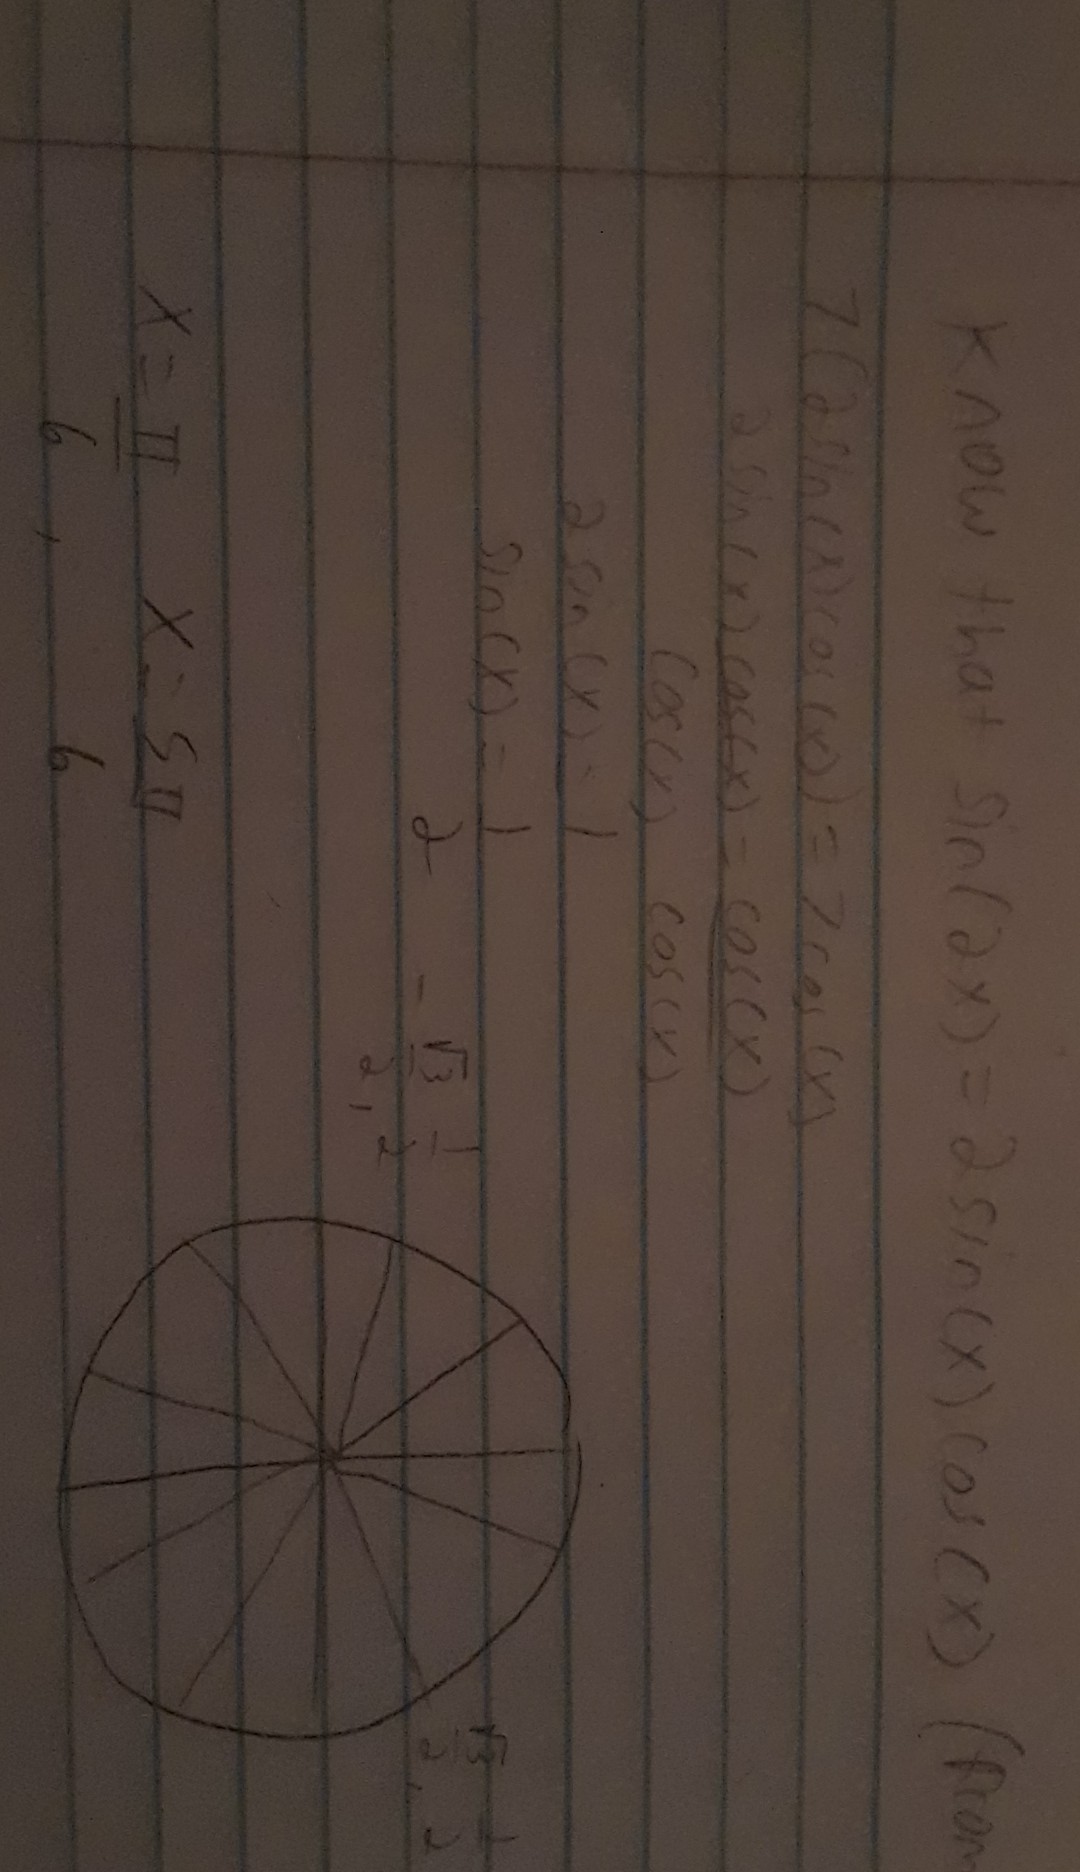 know that sin(2x) = 2sin(x)cos(x) (from
7(2sin(x)cos(x)) = 7cos(x)
2sin(x)cos(x) = cos(x)
cos(x) cos(x)
2sin(x) = 1
sin(x) = 1
2
-√3/2, 1/2
√3/2, 1/2
x = π/6, x = 5π/6